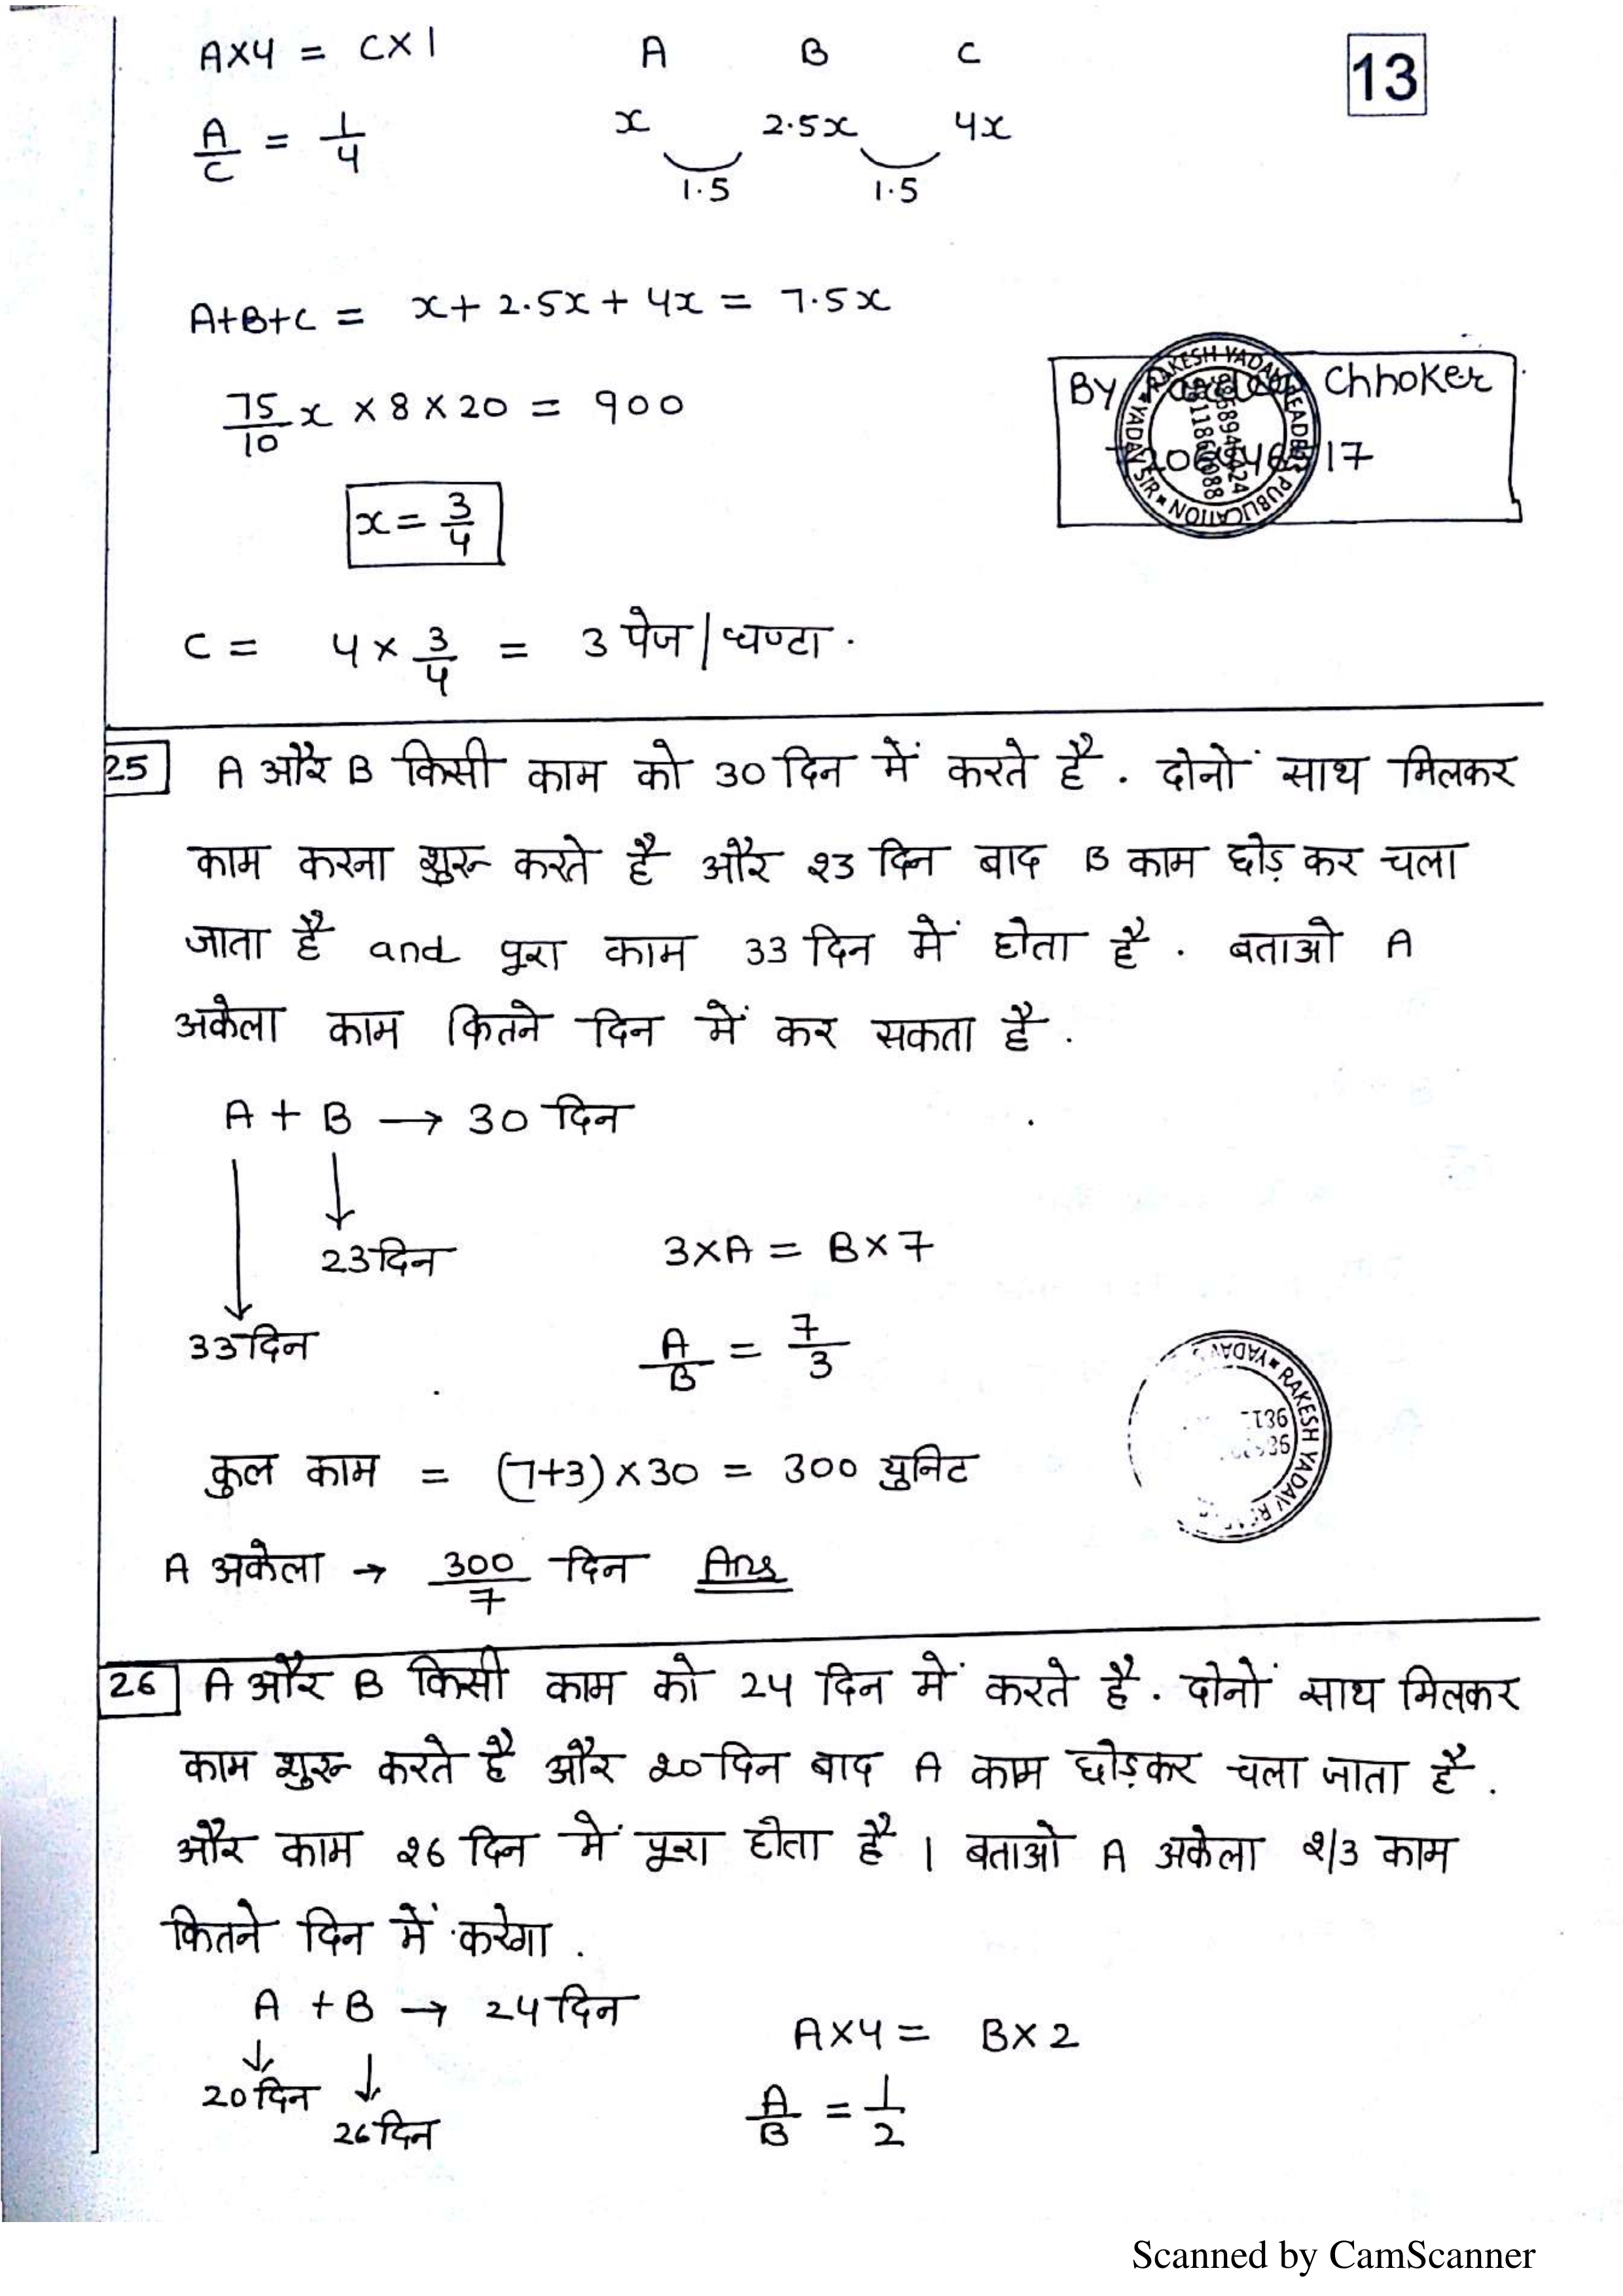 13
A×4 = C×1
A B C
A/C = 1/4
x 2.5x 4x
1.5 1.5
A+B+C = x + 2.5x + 4x = 7.5x
75/10 x × 8 × 20 = 900
BY Chhoker
17
RAKESH YADAV READERS PUBLICATION
YADAV SIR
x = 3/4
C = 4 × 3/4 = 3 पेज / घण्टा .
25 A और B किसी काम को 30 दिन में करते है . दोनों साथ मिलकर
काम करना शुरू करते है और 23 दिन बाद B काम छोड़ कर चला
जाता है and पूरा काम 33 दिन में होता है . बताओ A
अकेला काम कितने दिन में कर सकता है .
A + B → 30 दिन
23 दिन
3×A = B×7
33 दिन
A/B = 7/3
RAKESH YADAV
कुल काम = (7+3) × 30 = 300 युनिट
A अकेला → 300/7 दिन Ans
26 A और B किसी काम को 24 दिन में करते है . दोनों साथ मिलकर
काम शुरू करते है और 20 दिन बाद A काम छोड़कर चला जाता है .
और काम 26 दिन में पूरा होता है । बताओ A अकेला 2/3 काम
कितने दिन में करेगा .
A + B → 24 दिन
A×4 = B×2
20 दिन
26 दिन
A/B = 1/2
Scanned by CamScanner